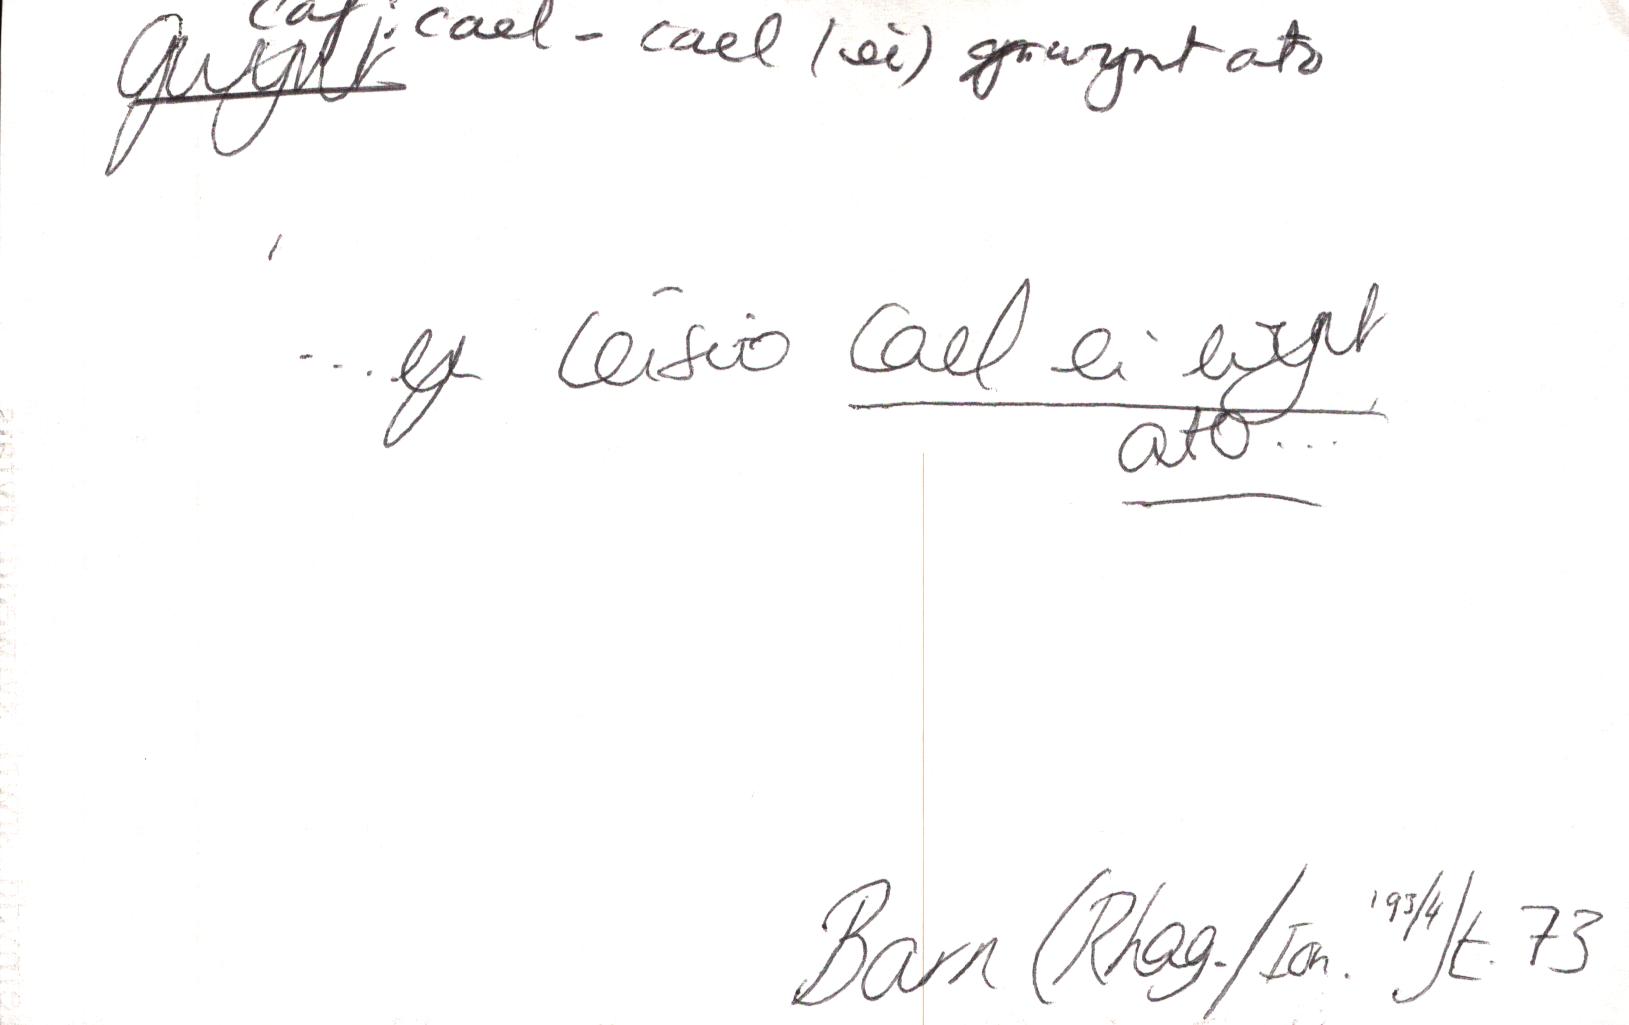 caf: cael - cael (ei) gwynt ato
gwynt
... yn ceisio cael ei wynt
ato ...
Barn (Rhag./Ion. '93/4) t. 73